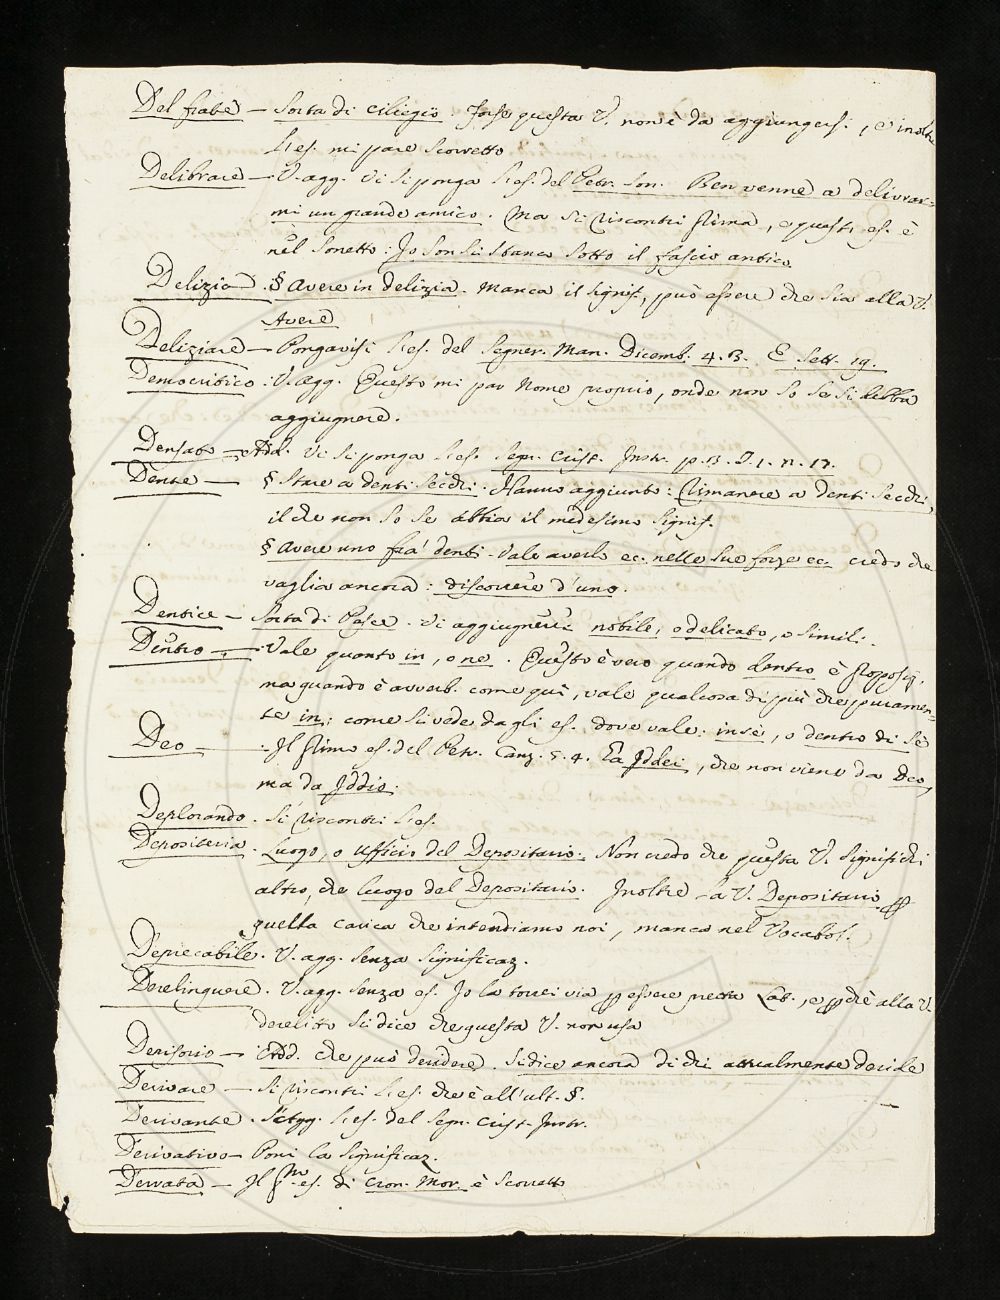 Del frate — Sorta di ciliegio. Forse questa V. non è da aggiungersi, e inoltre
l'es. mi pare scorretto
Delibrare — V. agg. Vi si ponga l'es. del Petr. Son. Ben venne a delivrar=
mi un grande amico. Ma si riscontri prima, e questi es. è
nel Sonetto: Io son sì stanco sotto il fascio antico
Delizia. § Avere in delizia. Manca il signif., può essere che sia alla V.
Avere
Deliziare — Pongavisi l'es. del Segner. Man. Dicemb. 4. 3. E Sett. 19.
Democritico: V. agg. Questo mi par Nome proprio, onde non so se si debba
aggiugnere.
Densato — Add. Vi si ponga l'es. Segn. Crist. Instr. p. 3. I. 1. n. 17.
Dente — § Stare a denti secchi. Hanno aggiunto: Rimanere a denti secchi,
il che non so se abbia il medesimo signif.
§ Avere uno fra' denti. Vale averlo ec. nelle sue forze ec. credo che
vaglia ancora: discorrere d'uno.
Dentice — Sorta di Pesce. Vi aggiugnerei nobile, e delicato, o simil.
Dentro — Vale quanto in, o ne. Questo è vero quando dentro è preposiz.
ma quando è avverb. come quì, vale qualcosa di più che puramen=
te in; come si vede dagli es. dove vale: in se, o dentro di sè
Deo — Il primo es. del Petr. Canz. 5. 4. Ea Iddei, che non viene da Deo,
ma da Iddio.
Deplorando. Si riscontri l'es.
Depositeria. Luogo, o Ufficio del Depositario. Non credo che questa V. significhi
altro, che luogo del Depositario. Inoltre la V. Depositario p
quella carica che intendiamo noi, manca nel Vocabol.
Deprecabile. V. agg. senza significaz.
Derelinquere. V. agg. senza es. Io la torrei via p essere pretta Lat., e pchè alla V.
derelitto si dice che questa V. non usa
Derisorio — Add. che può deridere. Si dice ancora di chi attualmente deride
Derivare — Si riscontri l'es. che è all'ult. §.
Derivante. S'agg. l'es. del Segn. Crist. Instr.
Derivativo — Poni la significaz.
Derrata — Il pmo es. di Cron. Mor. è scorretto